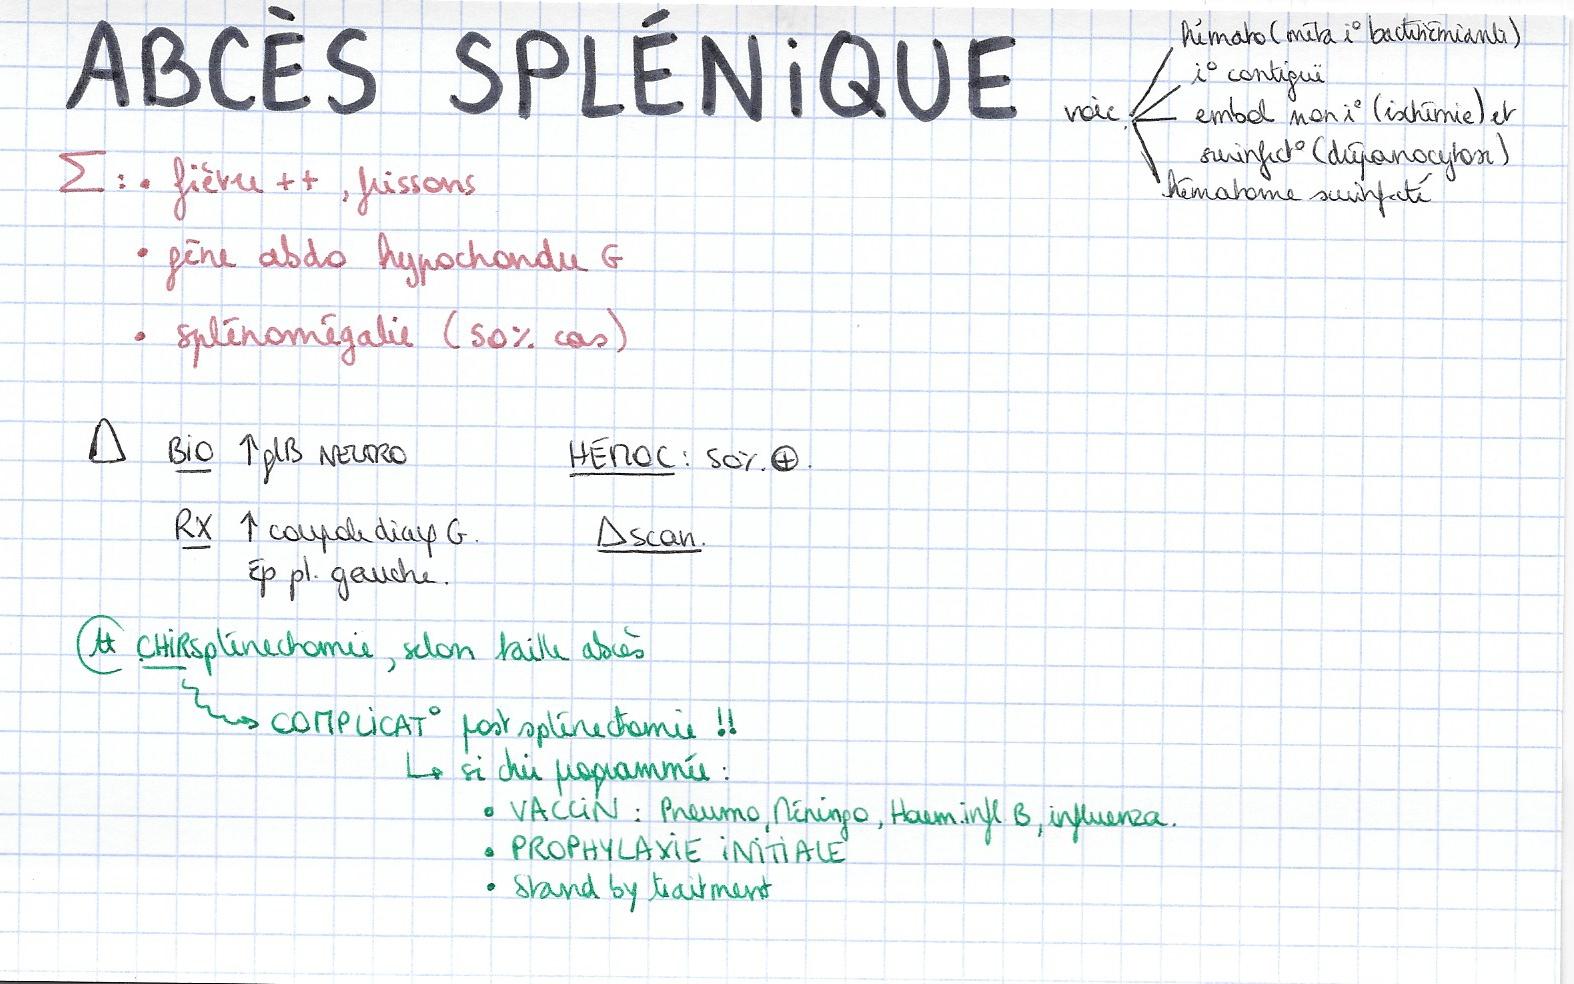 ABCÈS SPLÉNiQUE
voie
hémato (méta i° bactériémiante)
i° contiguë
embol non i° (ischémie) et
surinfect° (drépanocytose)
hématome surinfecté
Σ : • fièvre ++, frissons
• gêne abdo hypochondre G
• splénomégalie (50% cas)
Δ BiO ↑ glB NEUTRO
HÉMOC : 50% ⊕.
RX ↑ coupole diaφ G.
Ep pl. gauche.
Δ scan.
tt CHiR splénectomie, selon taille abcès
COMPLiCAT° post splénectomie !!
↳ si chir programmée :
• VACCiN : Pneumo, Méningo, Haem. infl B, influenza.
• PROPHYLAXiE iNiTiALE
• Stand by traitment